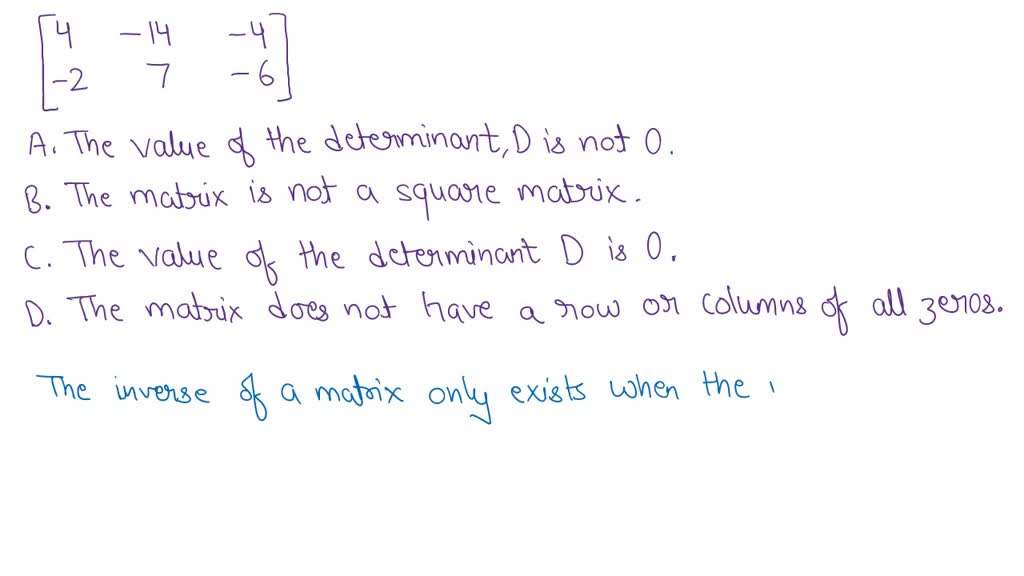 4 -14 -4
-2 7 -6
A. The value of the determinant, D is not 0.
B. The matrix is not a square matrix.
C. The value of the determinant D is 0.
D. The matrix does not have a row or columns of all zeros.
The inverse of a matrix only exists when the